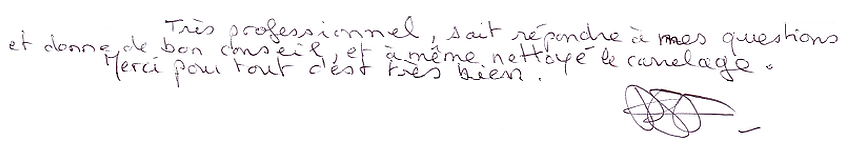 Très professionnel, sait répondre à mes questions
et donne de bon conseil, et à même nettoyé le carrelage.
Merci pour tout c'est très bien.